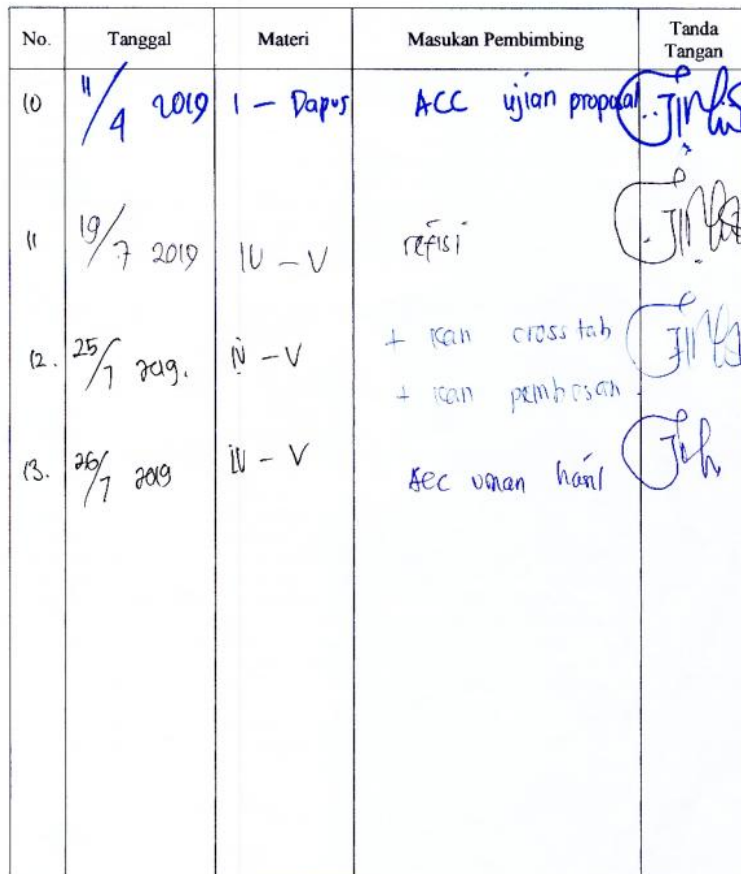 No. Tanggal Materi Masukan Pembimbing Tanda Tangan
10 11/4 2019 I - Dapus ACC ujian proposal
11 19/7 2019 IV - V refisi
12. 25/7 2019. IV - V + kan cross tab
+ kan
13. 26/7 2019 IV - V Acc hasil